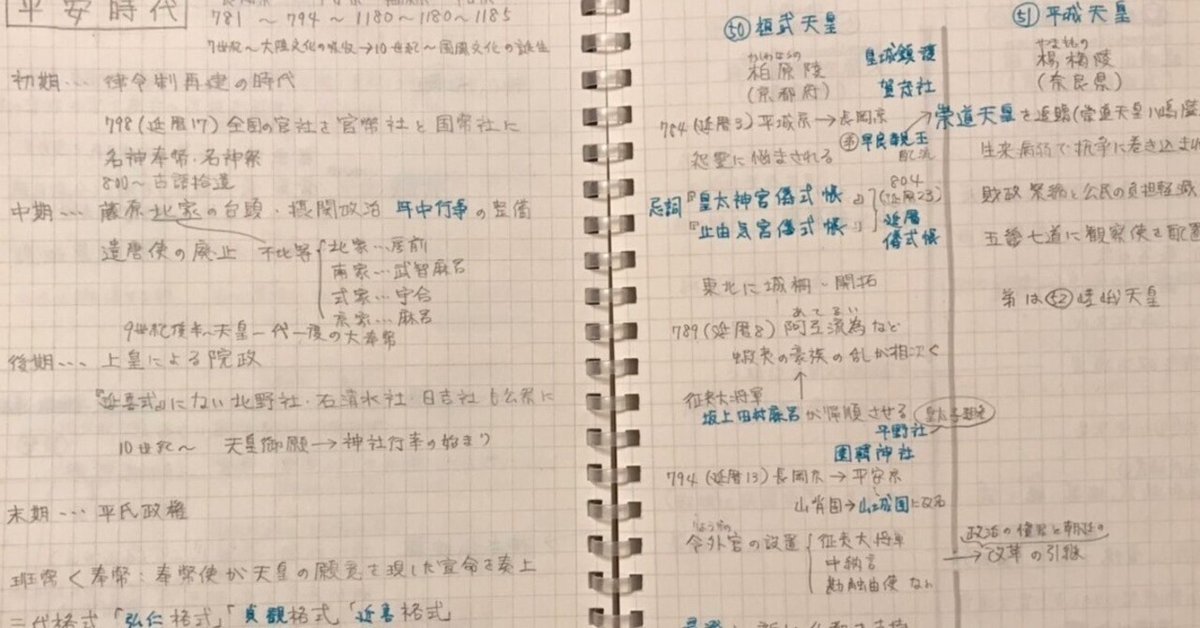 平安時代
781 ～ 794 ～ 1180～1180～1185
7世紀～大陸文化の吸収→10世紀～国風文化の誕生
初期… 律令制再建の時代
798(延暦17) 全国の官社を官幣社と国幣社に
名神奉幣・名神祭
800～古語拾遺
中期… 藤原北家の台頭・摂関政治 年中行事の整備
遣唐使の廃止 不比等
北家…房前
南家…武智麻呂
式家…宇合
京家…麻呂
9世紀後半～天皇一代一度の大奉幣
後期… 上皇による院政
『延喜式』にない北野社・石清水社・日吉社も公祭に
10世紀～ 天皇御願→神社行幸の始まり
末期… 平氏政権
班幣く奉幣:奉幣使が天皇の願意を現した宣命を奏上
三代格式「弘仁格式」「貞観格式」「延喜格式」
㊿桓武天皇
かしわばらの
柏原陵
(京都府)
皇城鎮護
賀茂社
784(延暦3)平城京→長岡京
怨霊に悩まされる
弟早良親王
配流
忌詞『皇太神宮儀式帳』
『止由気宮儀式帳』
804
(延暦23)
延暦
儀式帳
東北に城柵・開拓
あてるい
789(延暦8) 阿弖流為など
蝦夷の豪族の乱が相次ぐ
↑
征夷大将軍
坂上田村麻呂が帰順させる
平野社
園韓神社
794(延暦13)長岡京→平安京
山背国→山城国に改名
りょうげの
令外官の設置
征夷大将軍
中納言
勘解由使 など
51 平城天皇
やまももの
楊梅陵
(奈良県)
崇道天皇を追贈(崇道天皇八嶋陵
生来病弱で抗争に巻き込まれ
財政緊縮と公民の負担軽減
五畿七道に観察使を配置
弟は52嵯峨天皇
→改革の引継